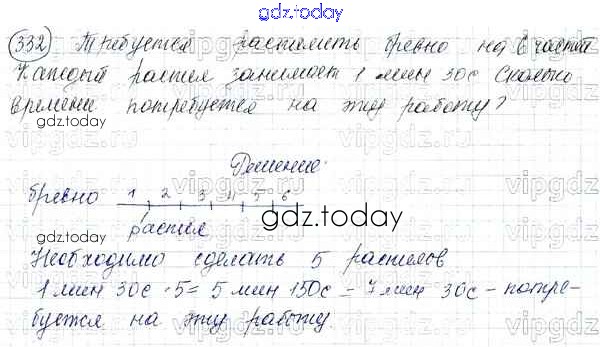 gdz.today
332 Требуется распилить бревно на 6 частей
Каждый распил занимает 1 мин 30с Сколько
времени потребуется на эту работу?
gdz.today
Решение:
бревно 1 2 3 4 5 6
распил
gdz.today
Необходимо сделать 5 распилов
1 мин 30с · 5 = 5 мин 150с = 7 мин 30с - потре-
буется на эту работу.
gdz.today